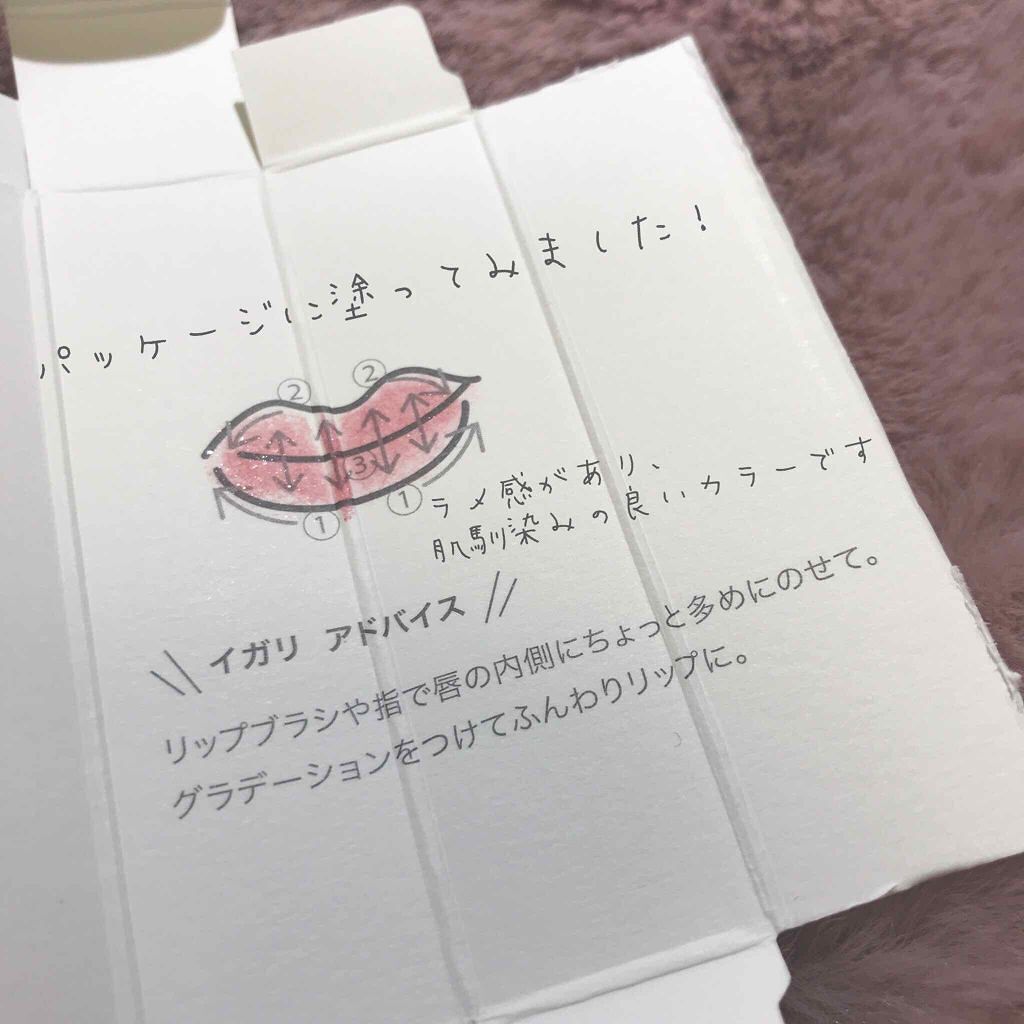 パッケージに塗ってみました!
② ②
③
① ①
ラメ感があり、
肌馴染みの良いカラーです
\\ イガリ アドバイス //
リップブラシや指で唇の内側にちょっと多めにのせて。
グラデーションをつけてふんわりリップに。